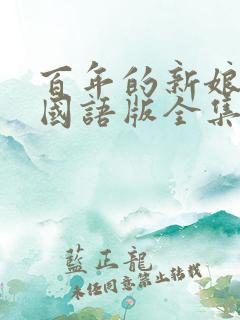 百年的新娘
國語版全集
藍正龍
未經同意禁止轉載